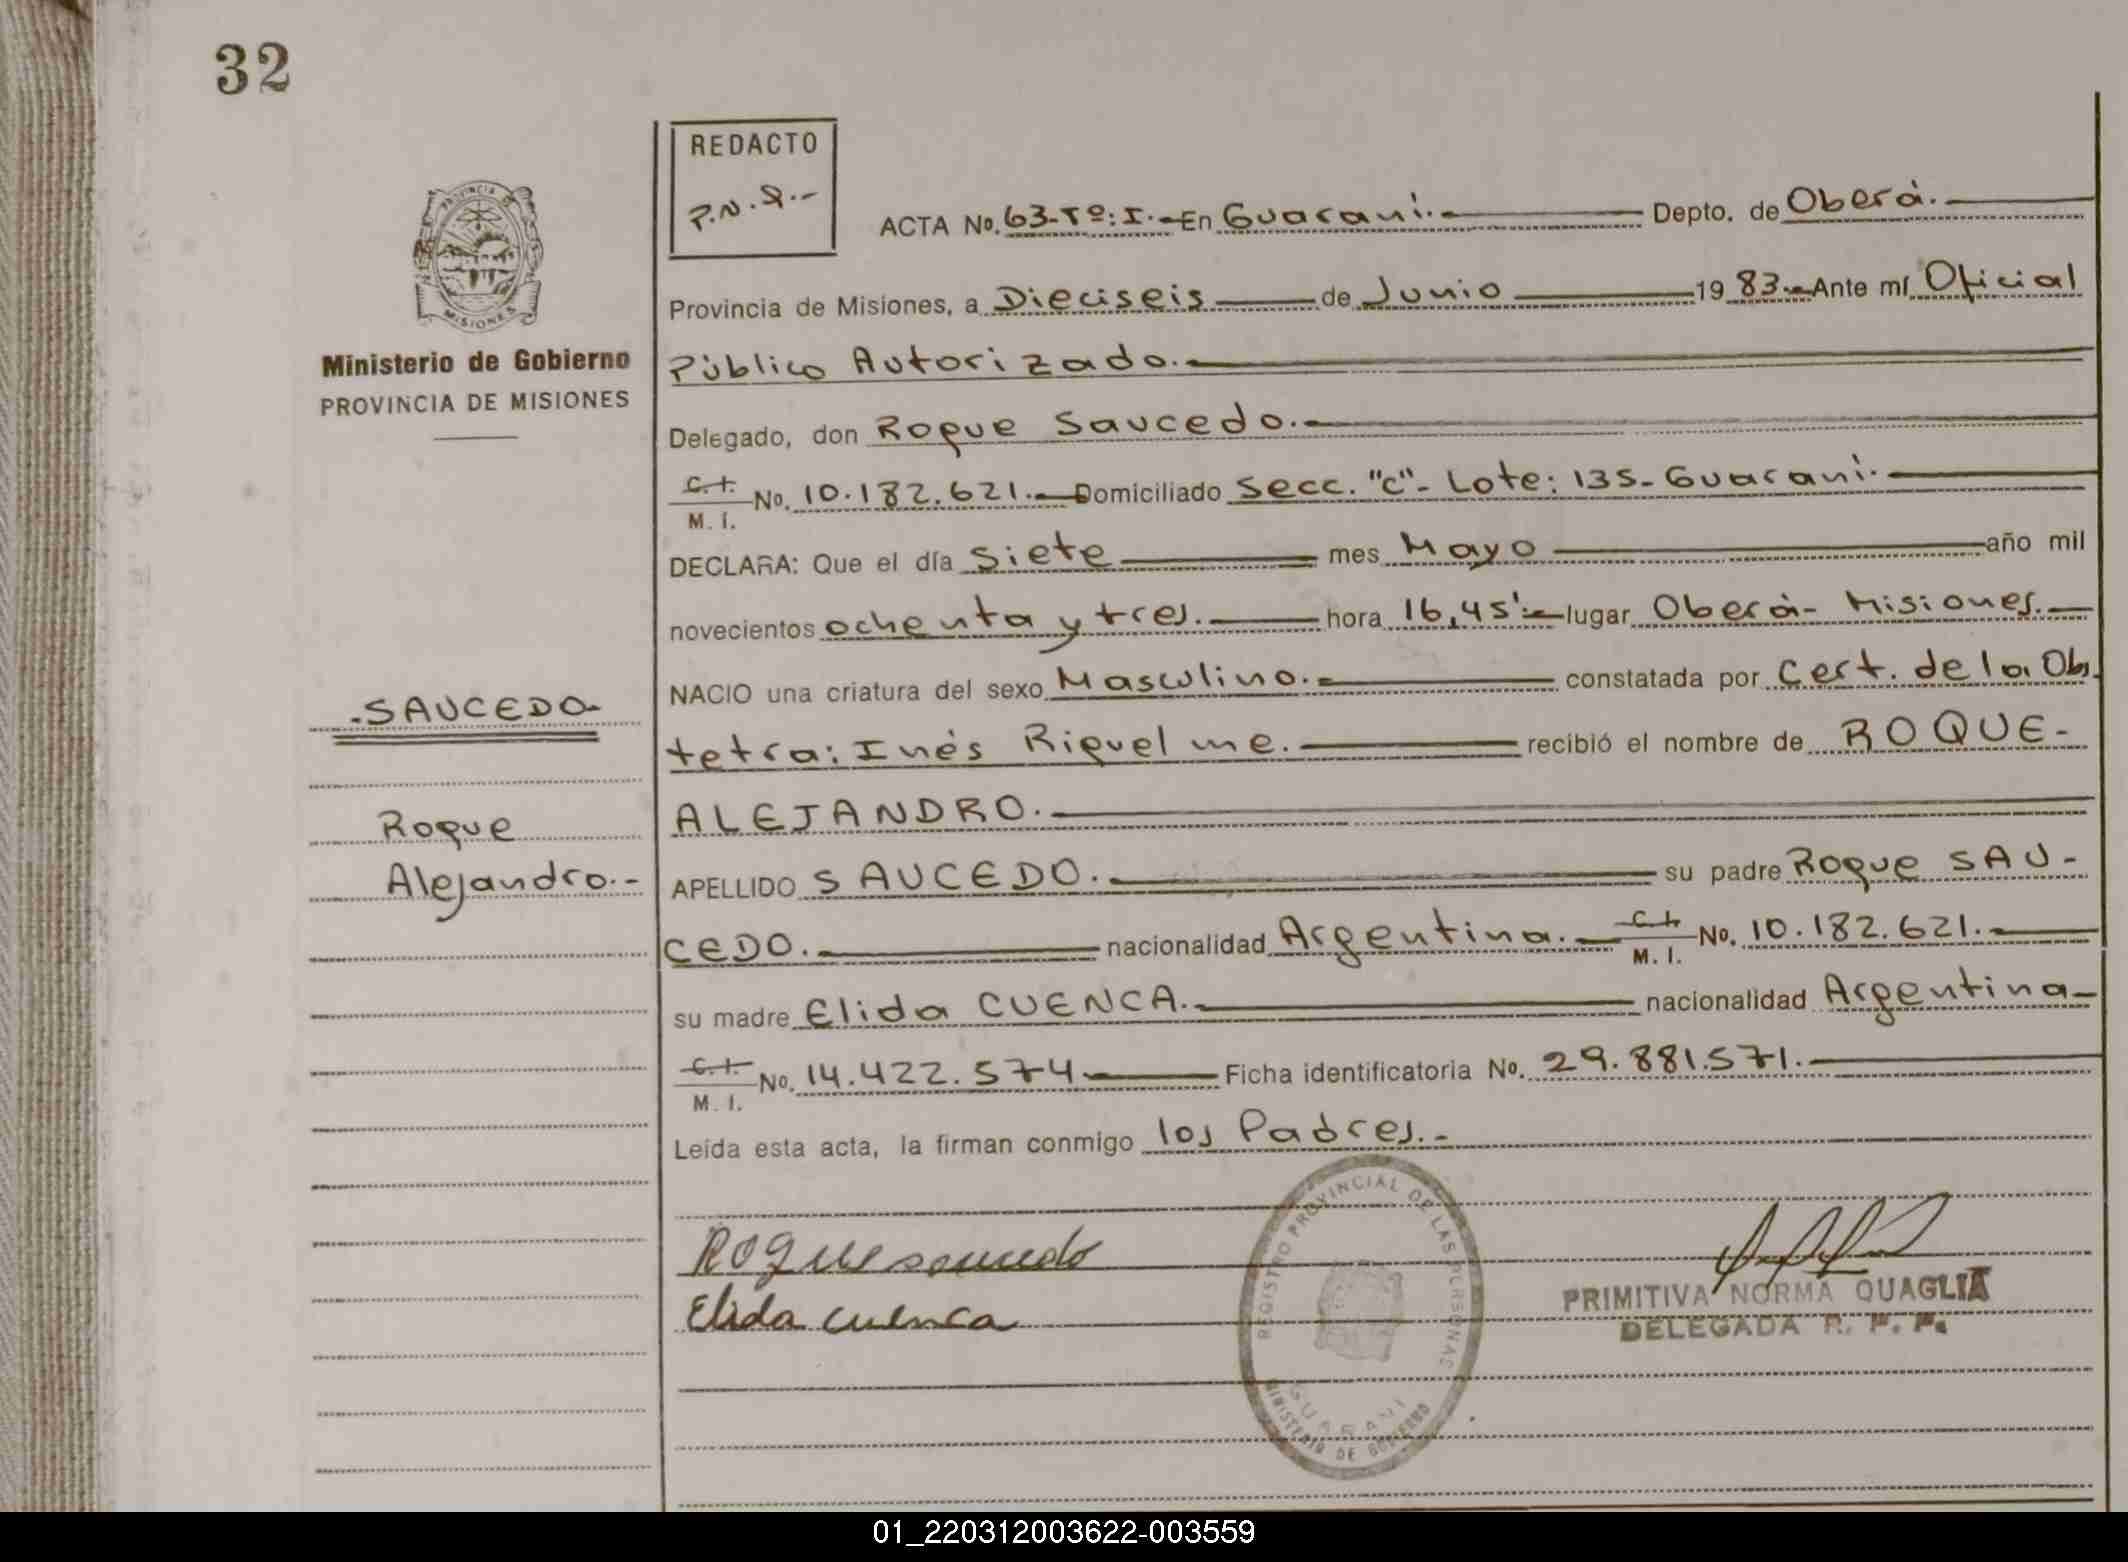 32
REDACTO
P.N.Q.-
ACTA No. 63-Tº: I.- En Guaraní.- Depto. de Oberá.-
Provincia de Misiones, a Dieciseis de Junio 19 83.- Ante mí Oficial
Público Autorizado.-
Delegado, don Roque Saucedo.-
C.I. M. I. No. 10.182.621.- Domiciliado Secc. "C"- Lote: 135- Guaraní.-
DECLARA: Que el día Siete mes Mayo año mil
novecientos ochenta y tres.- hora 16,45'.- lugar Oberá- Misiones.-
NACIO una criatura del sexo Masculino.- constatada por Cert. de la Obs
tetra: Inés Riquelme.- recibió el nombre de ROQUE-
ALEJANDRO.-
APELLIDO SAUCEDO.- su padre Roque SAU-
CEDO.- nacionalidad Argentina.- C.I. M. I. No. 10.182.621.-
su madre Elida CUENCA.- nacionalidad Argentina-
C.I. M. I. No. 14.422.574- Ficha identificatoria No. 29.881.571.-
Leída esta acta, la firman conmigo los Padres.-
Roque saucedo
Elida cuenca
REGISTRO PROVINCIAL DE LAS PERSONAS
GUARANI
MINISTERIO DE GOBIERNO
PRIMITIVA NORMA QUAGLIA
DELEGADA R. P. P.
PROVINCIA
MISIONES
Ministerio de Gobierno
PROVINCIA DE MISIONES
-SAUCEDO-
Roque
Alejandro.-
01_220312003622-003559